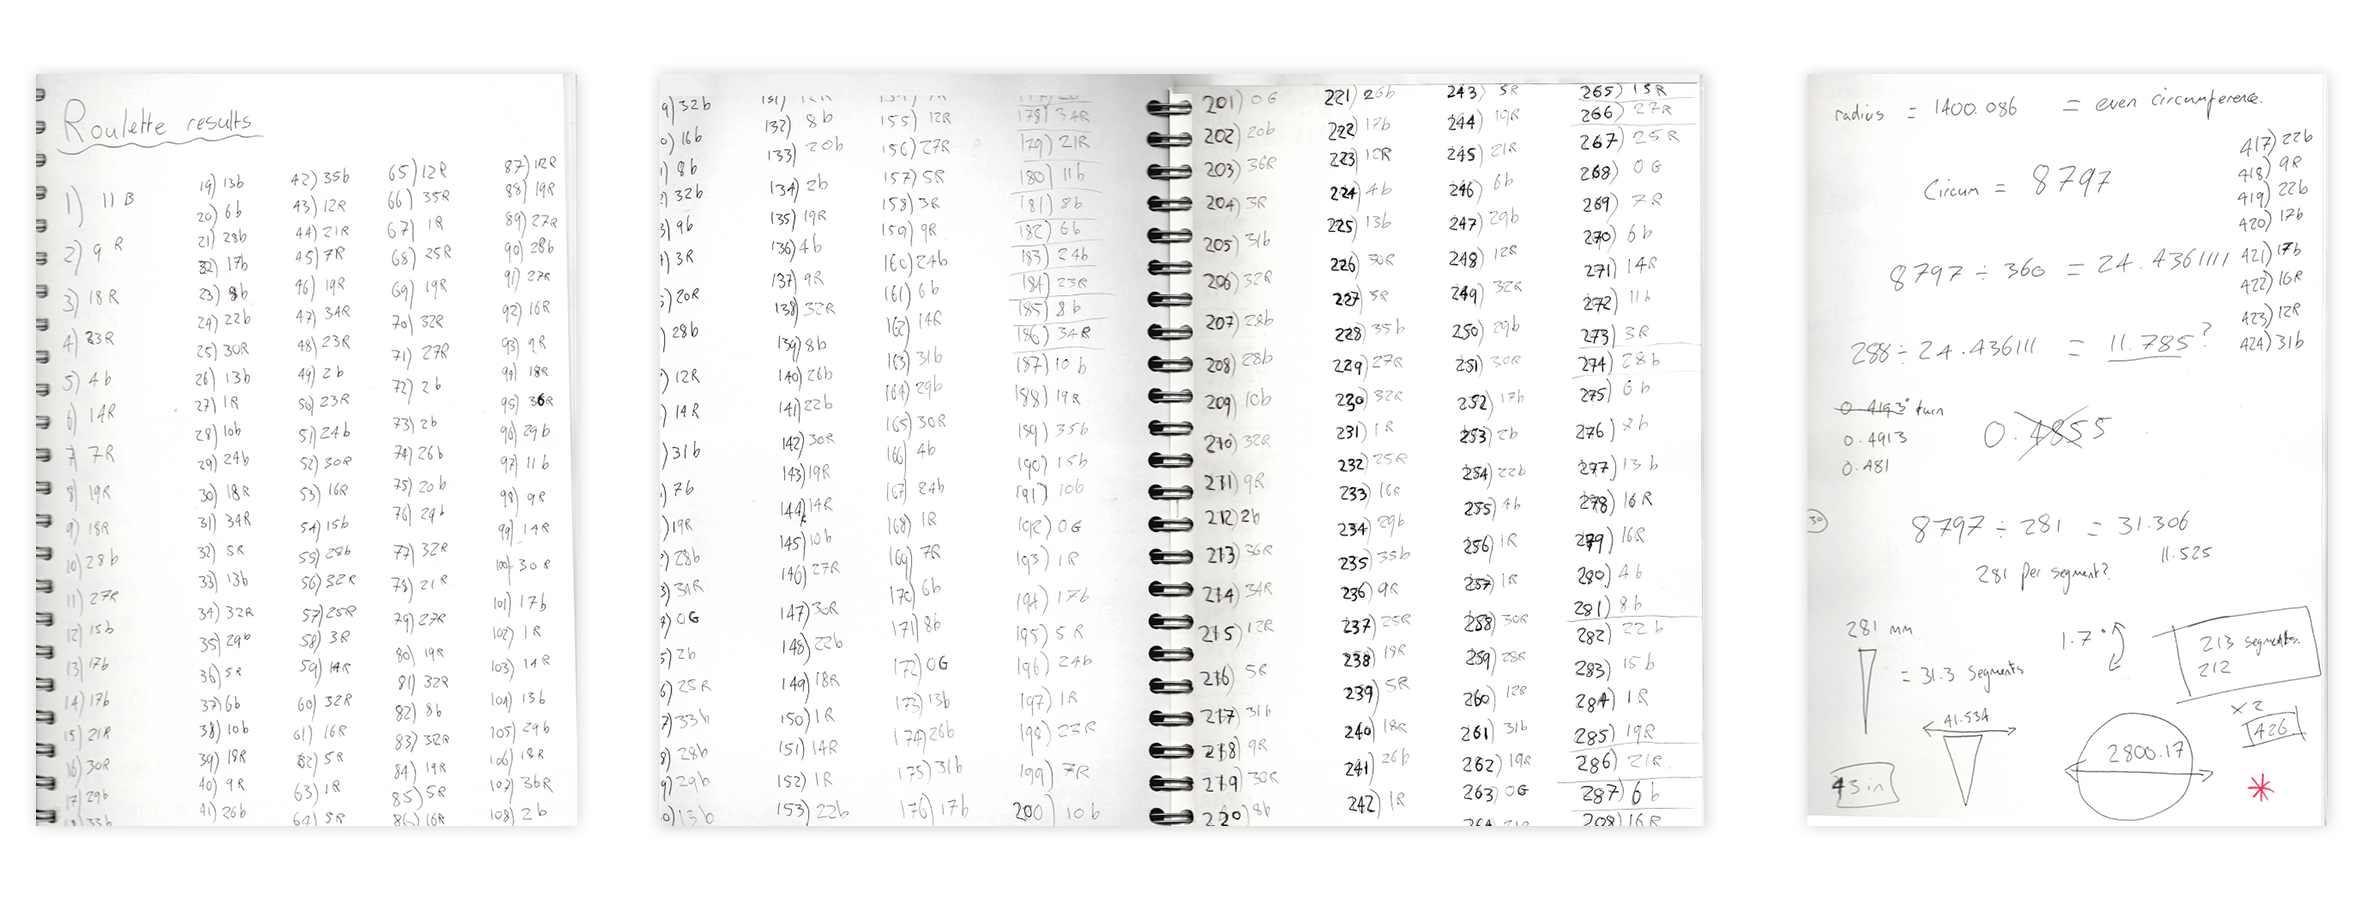 Roulette results
1) 11 B
2) 9 R
3) 18 R
4) 33R
5) 4 b
6) 14R
7) 7R
8) 19R
9) 18R
10) 28 b
11) 27R
12) 15b
13) 17b
14) 17b
15) 21R
16) 30R
17) 29b
18) 33b
19) 13b
20) 6b
21) 28b
22) 17b
23) 8b
24) 22b
25) 30R
26) 13b
27) 1R
28) 10b
29) 24b
30) 18R
31) 34R
32) 5R
33) 13b
34) 32R
35) 29b
36) 5R
37) 6b
38) 10b
39) 18R
40) 9R
41) 26b
42) 35b
43) 12R
44) 21R
45) 7R
46) 19R
47) 34R
48) 23R
49) 2b
50) 23R
51) 24b
52) 30R
53) 16R
54) 15b
55) 28b
56) 32R
57) 25R
58) 3R
59) 14R
60) 32R
61) 16R
62) 5R
63) 1R
64) 5R
65) 12R
66) 35R
67) 1R
68) 25R
69) 19R
70) 32R
71) 27R
72) 2b
73) 2b
74) 26b
75) 20b
76) 29b
77) 32R
78) 21R
79) 27R
80) 19R
81) 32R
82) 8b
83) 32R
84) 19R
85) 5R
86) 16R
87) 12R
88) 19R
89) 27R
90) 28b
91) 27R
92) 16R
93) 9R
94) 18R
95) 36R
96) 29b
97) 11b
98) 9R
99) 14R
100) 30R
101) 17b
102) 1R
103) 14R
104) 13b
105) 29b
106) 18R
107) 36R
108) 2b
9) 32b
0) 16b
1) 8b
32b
3) 9b
3R
5) 20R
28b
) 12R
) 14R
) 31b
) 7b
) 19R
) 28b
3) 34R
) 0G
5) 2b
6) 25R
7) 33b
8) 28b
9) 29b
0) 13b
131) 12R
132) 8b
133) 20b
134) 2b
135) 19R
136) 4b
137) 9R
138) 32R
139) 8b
140) 26b
141) 22b
142) 30R
143) 19R
144) 14R
145) 10b
146) 27R
147) 30R
148) 22b
149) 18R
150) 1R
151) 14R
152) 1R
153) 22b
155) 12R
156) 27R
157) 5R
158) 3R
159) 9R
160) 24b
161) 6b
162) 14R
163) 31b
164) 29b
165) 30R
166) 4b
167) 24b
168) 1R
169) 7R
170) 6b
171) 8b
172) 0G
173) 13b
174) 26b
175) 31b
176) 17b
178) 34R
179) 21R
180) 11b
181) 8b
182) 6b
183) 24b
184) 23R
185) 8b
186) 34R
187) 10b
188) 19R
189) 35b
190) 15b
191) 10b
192) 0G
193) 1R
194) 17b
195) 5R
196) 24b
197) 1R
198) 23R
199) 7R
200) 10b
201) 0G
202) 20b
203) 36R
204) 3R
205) 31b
206) 32R
207) 28b
208) 28b
209) 10b
210) 32R
211) 9R
212) 2b
213) 36R
214) 34R
215) 12R
216) 5R
217) 31b
218) 9R
219) 30R
220) 8b
221) 26b
222) 17b
223) 12R
224) 4b
225) 13b
226) 30R
227) 5R
228) 35b
229) 27R
230) 32R
231) 1R
232) 25R
233) 16R
234) 29b
235) 35b
236) 9R
237) 25R
238) 19R
239) 5R
240) 18R
241) 26b
242) 1R
243) 5R
244) 19R
245) 21R
246) 6b
247) 29b
248) 12R
249) 32R
250) 29b
251) 30R
252) 17b
253) 2b
254) 22b
255) 4b
256) 1R
257) 1R
258) 30R
259) 28R
260) 12R
261) 31b
262) 19R
263) 0G
264) 21R
265) 13R
266) 27R
267) 25R
268) 0G
269) 7R
270) 6b
271) 14R
272) 11b
273) 3R
274) 28b
275) 6b
276) 8b
277) 13b
278) 16R
279) 16R
280) 4b
281) 8b
282) 22b
283) 15b
284) 1R
285) 19R
286) 21R
287) 6b
208) 16R
radius = 1400.086 = even circumference.
Circum = 8797
8797 ÷ 360 = 24.4361111
288 ÷ 24.436111 = 11.785?
417) 22b
418) 9R
419) 22b
420) 17b
421) 17b
422) 16R
423) 12R
424) 31b
0.4193° turn
0.4913
0.481
0.4855
30
8797 ÷ 281 = 31.306
11.525
281 per segment?
281 mm
= 31.3 segments
1.7°
213 segments.
212
x2
426
41.534
2800.17
43 in